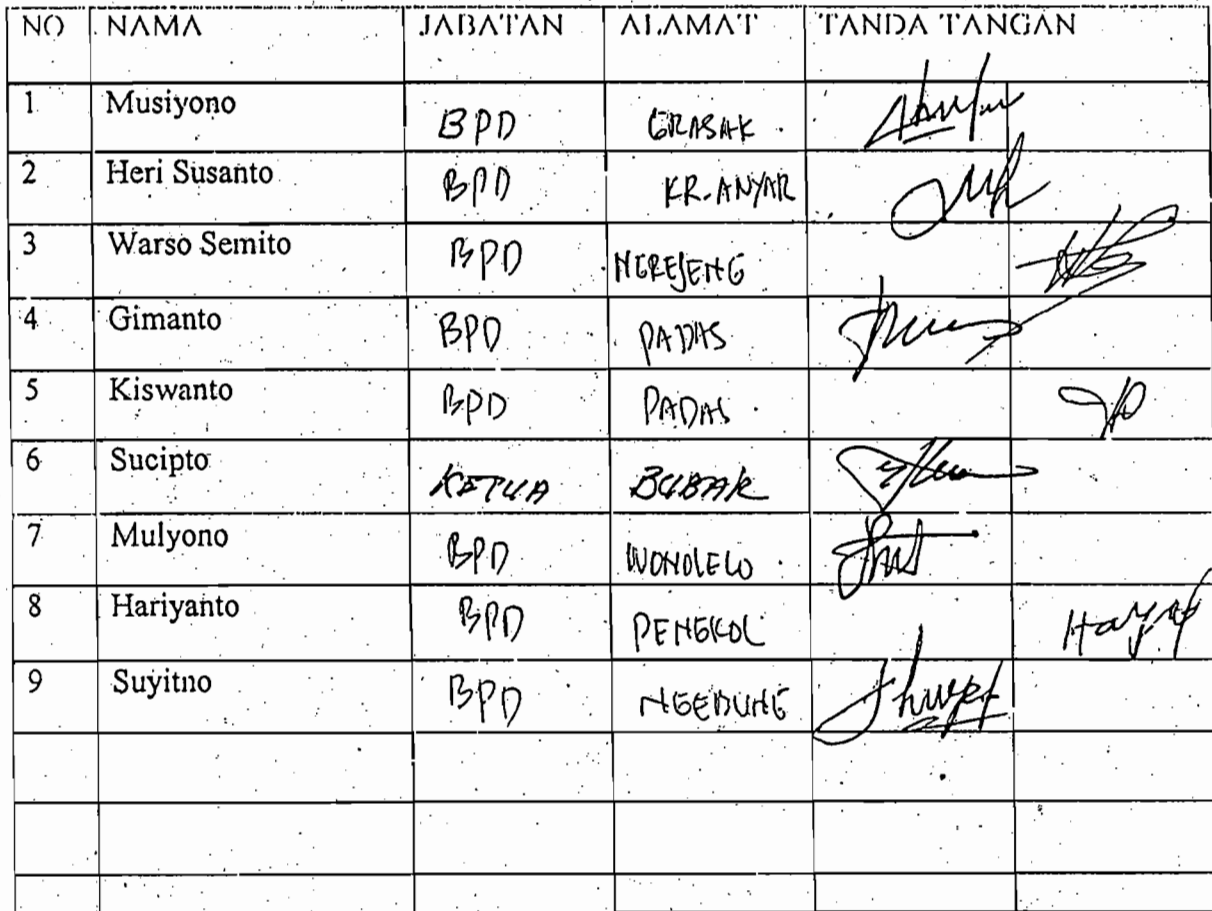 NO NAMA JABATAN ALAMAT TANDA TANGAN
1 Musiyono BPD GRASAK
2 Heri Susanto BPD KR. ANYAR
3 Warso Semito BPD NGRESENG
4 Gimanto BPD PADAS
5 Kiswanto BPD PADAS
6 Sucipto KETUA BUBAK
7 Mulyono BPD WONOLELO
8 Hariyanto BPD PENGKOL
9 Suyitno BPD